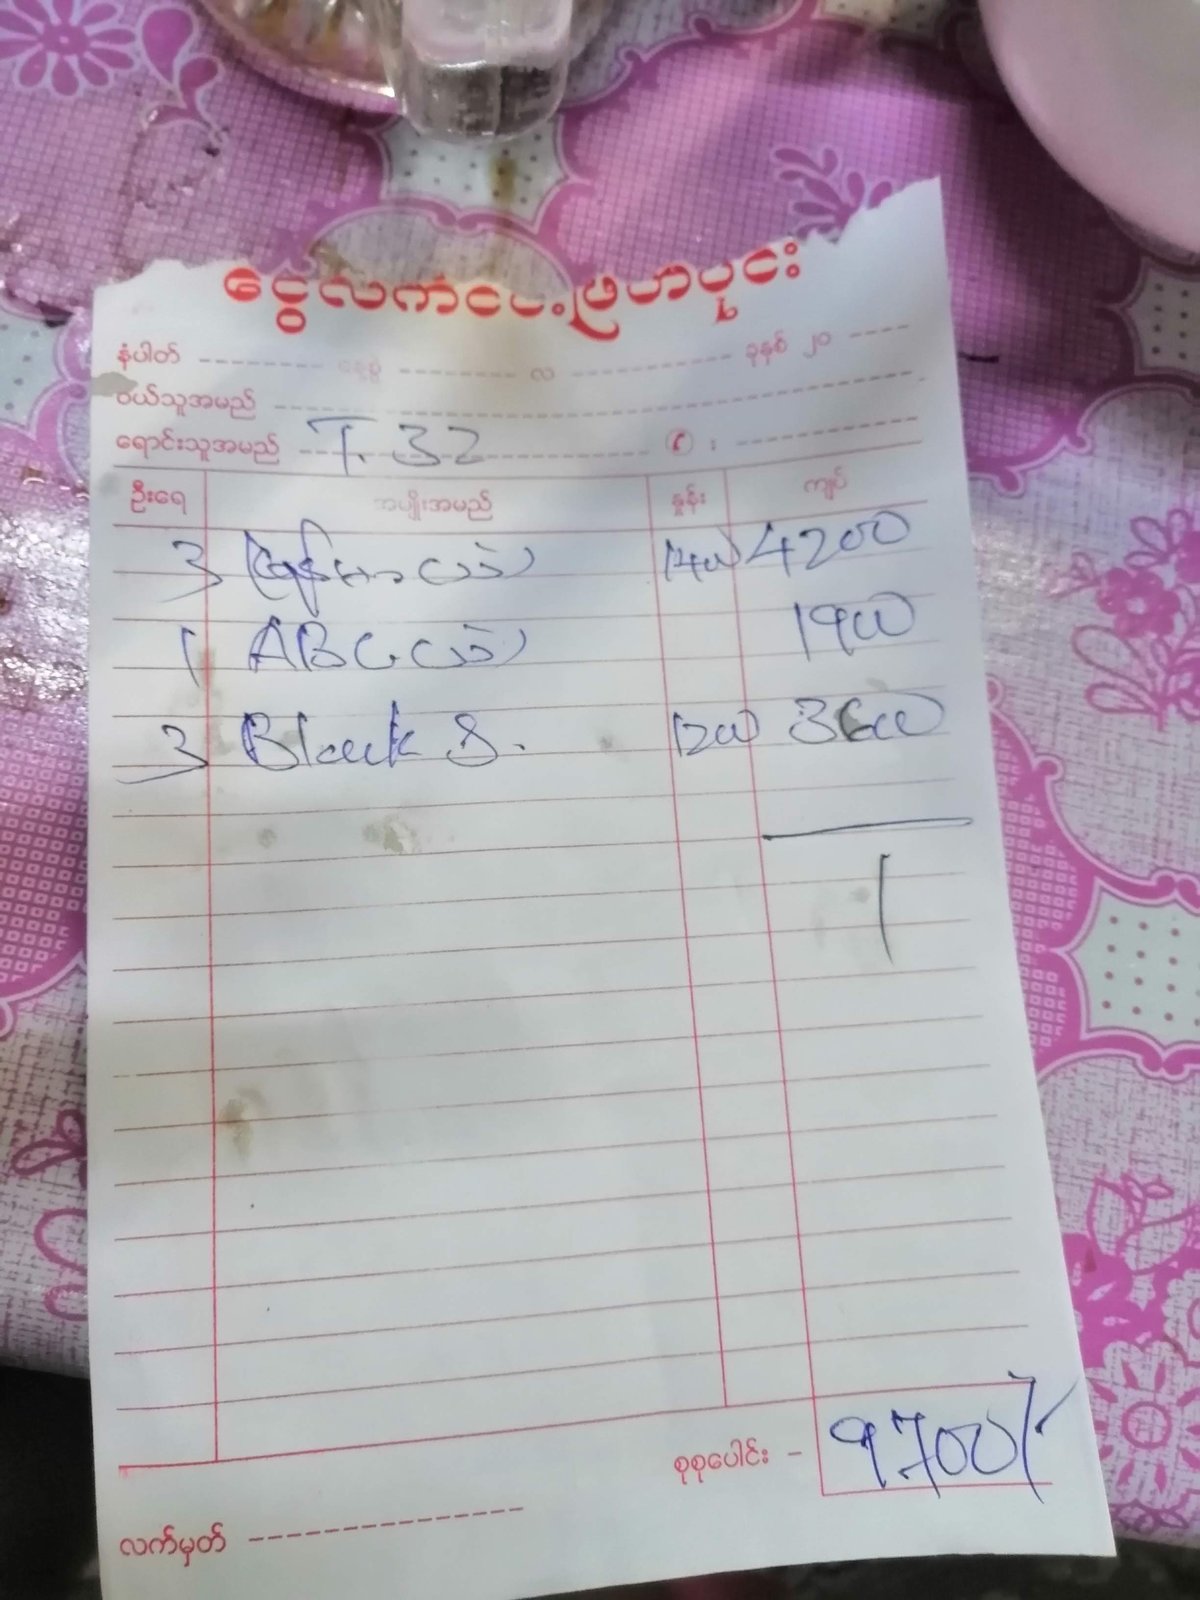 ငွေလက်ငင်းဖြတ်ပိုင်း
နံပါတ် နေ့စွဲ လ ခုနှစ် ၂၀
ဝယ်သူအမည်
ရောင်းသူအမည် T. 32 ✆ :
ဦးရေ အမျိုးအမည် နှုန်း ကျပ်
3 မြန်မာ ဘီယာ 1400 4200
1 ABC 1900
3 Black S. 1200 3600
စုစုပေါင်း - 9700/-
လက်မှတ်